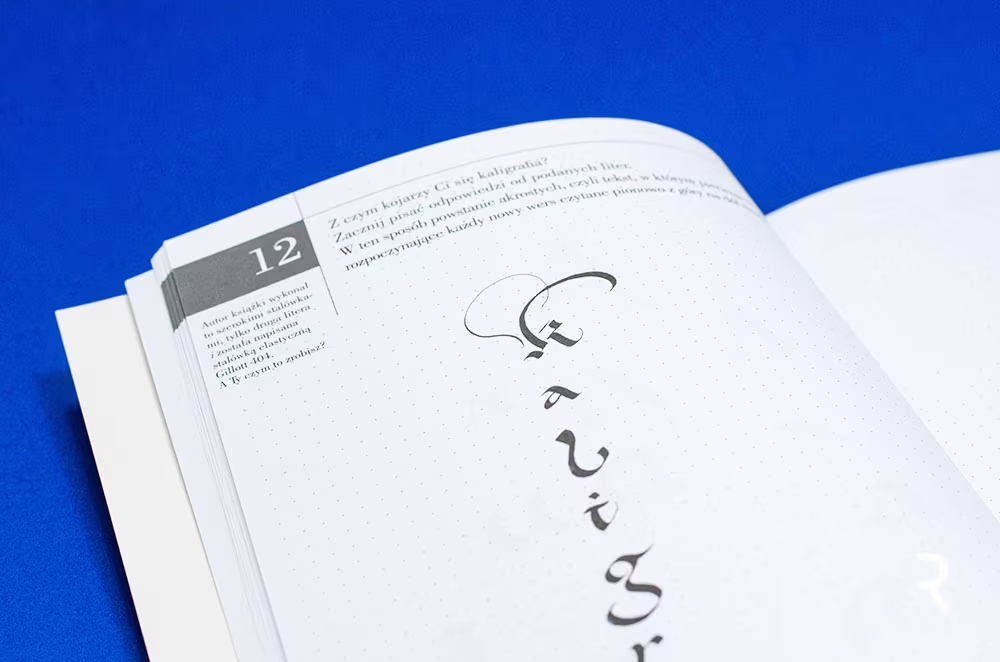 12
Z czym kojarzy Ci się kaligrafia?
Zacznij pisać odpowiedzi od podanych liter.
W ten sposób powstanie akrostych, czyli tekst, w którym
rozpoczynające każdy nowy wers czytane pionowo z góry na dół
Autor książki wykonał
to szerokimi stalówka-
mi, tylko druga litera
i została napisana
stalówką elastyczną
Gillott 404.
A Ty czym to zrobisz?
K
a
l
i
g
r
R